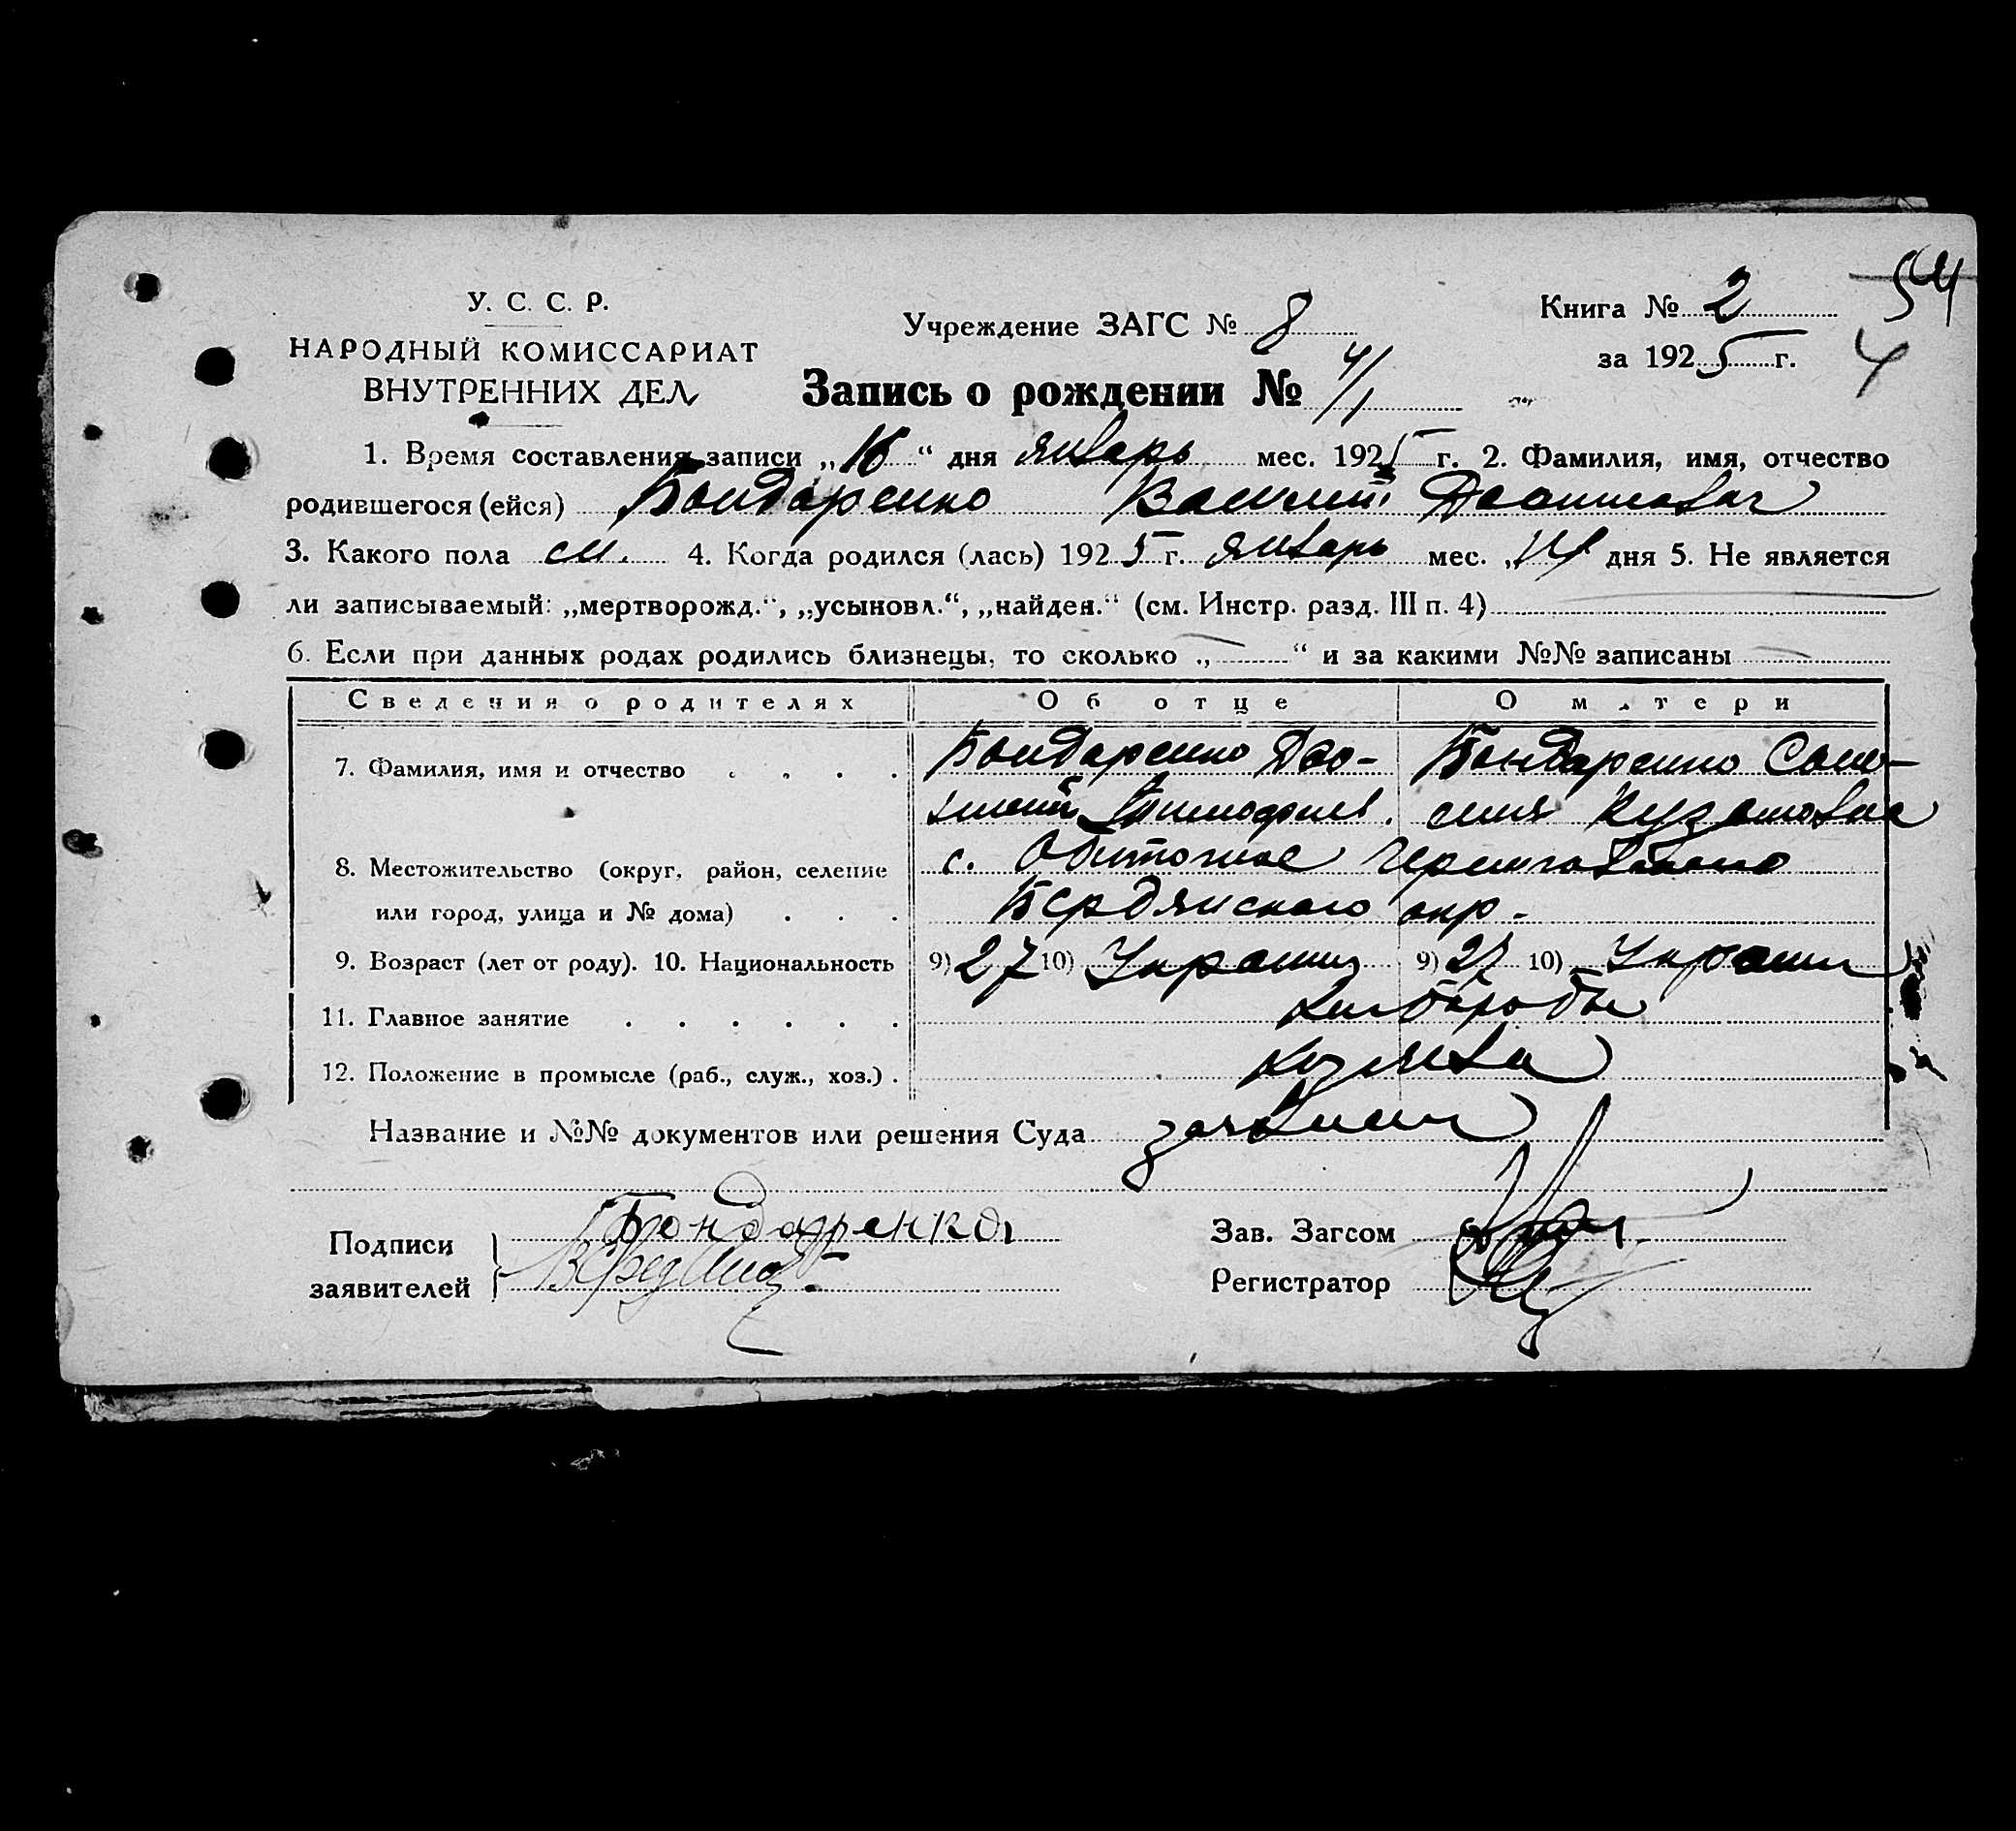 54
У. С. С. Р.
Учреждение ЗАГС № 8
Книга № 2
НАРОДНЫЙ КОМИССАРИАТ
за 1925 г.
4
ВНУТРЕННИХ ДЕЛ
Запись о рождении № 4/1
1. Время составления записи „16“ дня январь мес. 1925 г. 2. Фамилия, имя, отчество
родившегося (ейся) Бондаренко Василий
3. Какого пола м. 4. Когда родился (лась) 1925 г. январь мес. „ дня 5. Не является
ли записываемый: „мертворожд.“, „усыновл.“, „найден.“ (см. Инстр. разд. III п. 4)
6. Если при данных родах родились близнецы, то сколько „ “ и за какими №№ записаны
Сведения о родителях Об отце О матери
7. Фамилия, имя и отчество Бондаренко Бондаренко
Тимофиев. Кузмовна
8. Местожительство (округ, район, селение с. Обиточное Черниговского
или город, улица и № дома) Бердянского окр.
9. Возраст (лет от роду). 10. Национальность 9) 27 10) Украин 9) 27 10) Украин
11. Главное занятие хлебороды
12. Положение в промысле (раб., служ., хоз.) хозяева
Название и №№ документов или решения Суда
Подписи Бондаренко Зав. Загсом
заявителей Регистратор